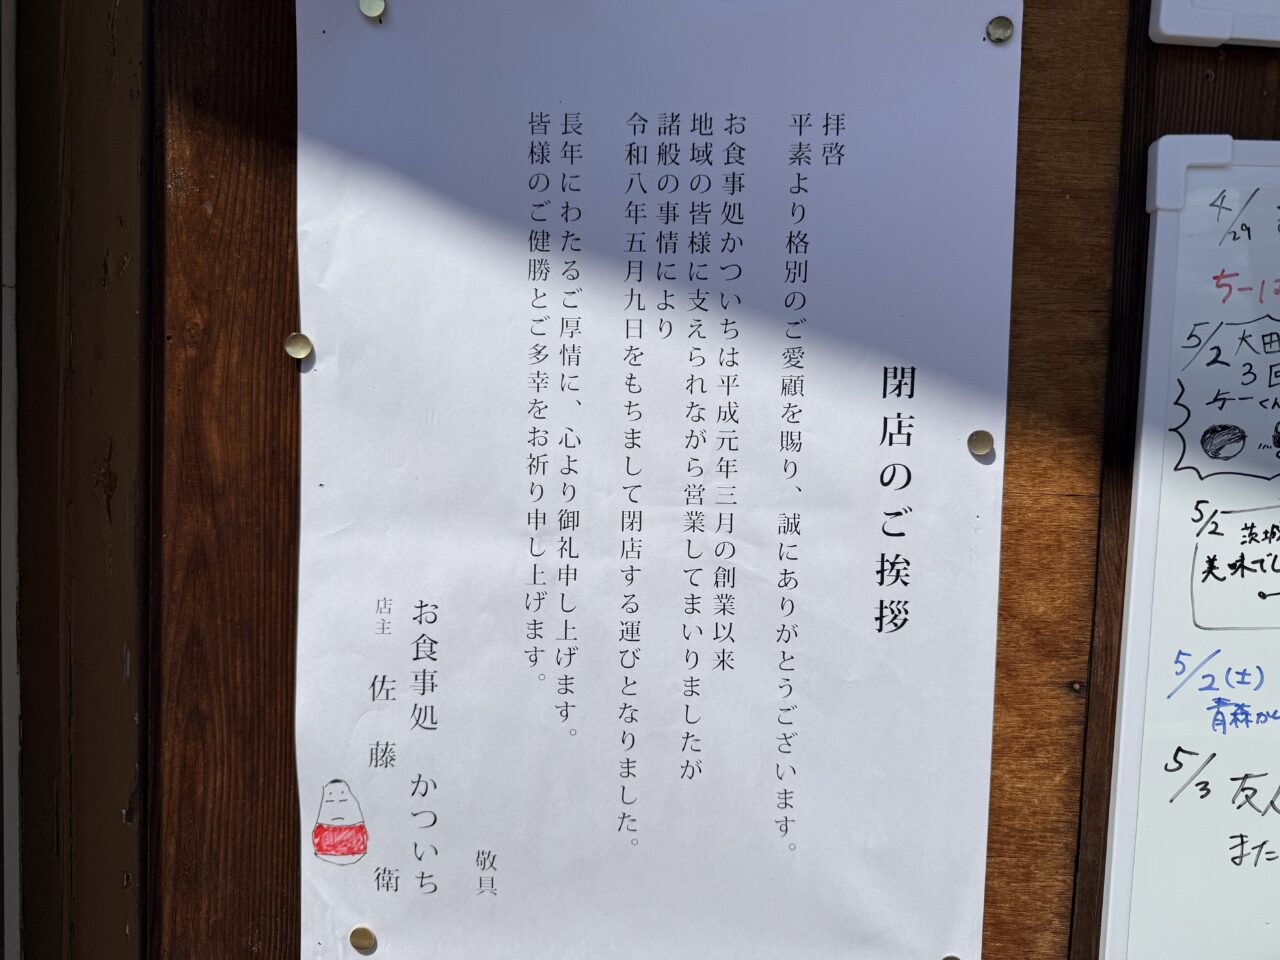 閉店のご挨拶
拝啓
平素より格別のご愛顧を賜り、誠にありがとうございます。
お食事処かついちは平成元年三月の創業以来
地域の皆様に支えられながら営業してまいりましたが
諸般の事情により
令和八年五月九日をもちまして閉店する運びとなりました。
長年にわたるご厚情に、心より御礼申し上げます。
皆様のご健勝とご多幸をお祈り申し上げます。
敬具
お食事処 かついち
店主 佐藤 衛
4/29
5/2 大田
3回
5/2 茨城
美味でし
5/2(土)
青森か
5/3 友人
また